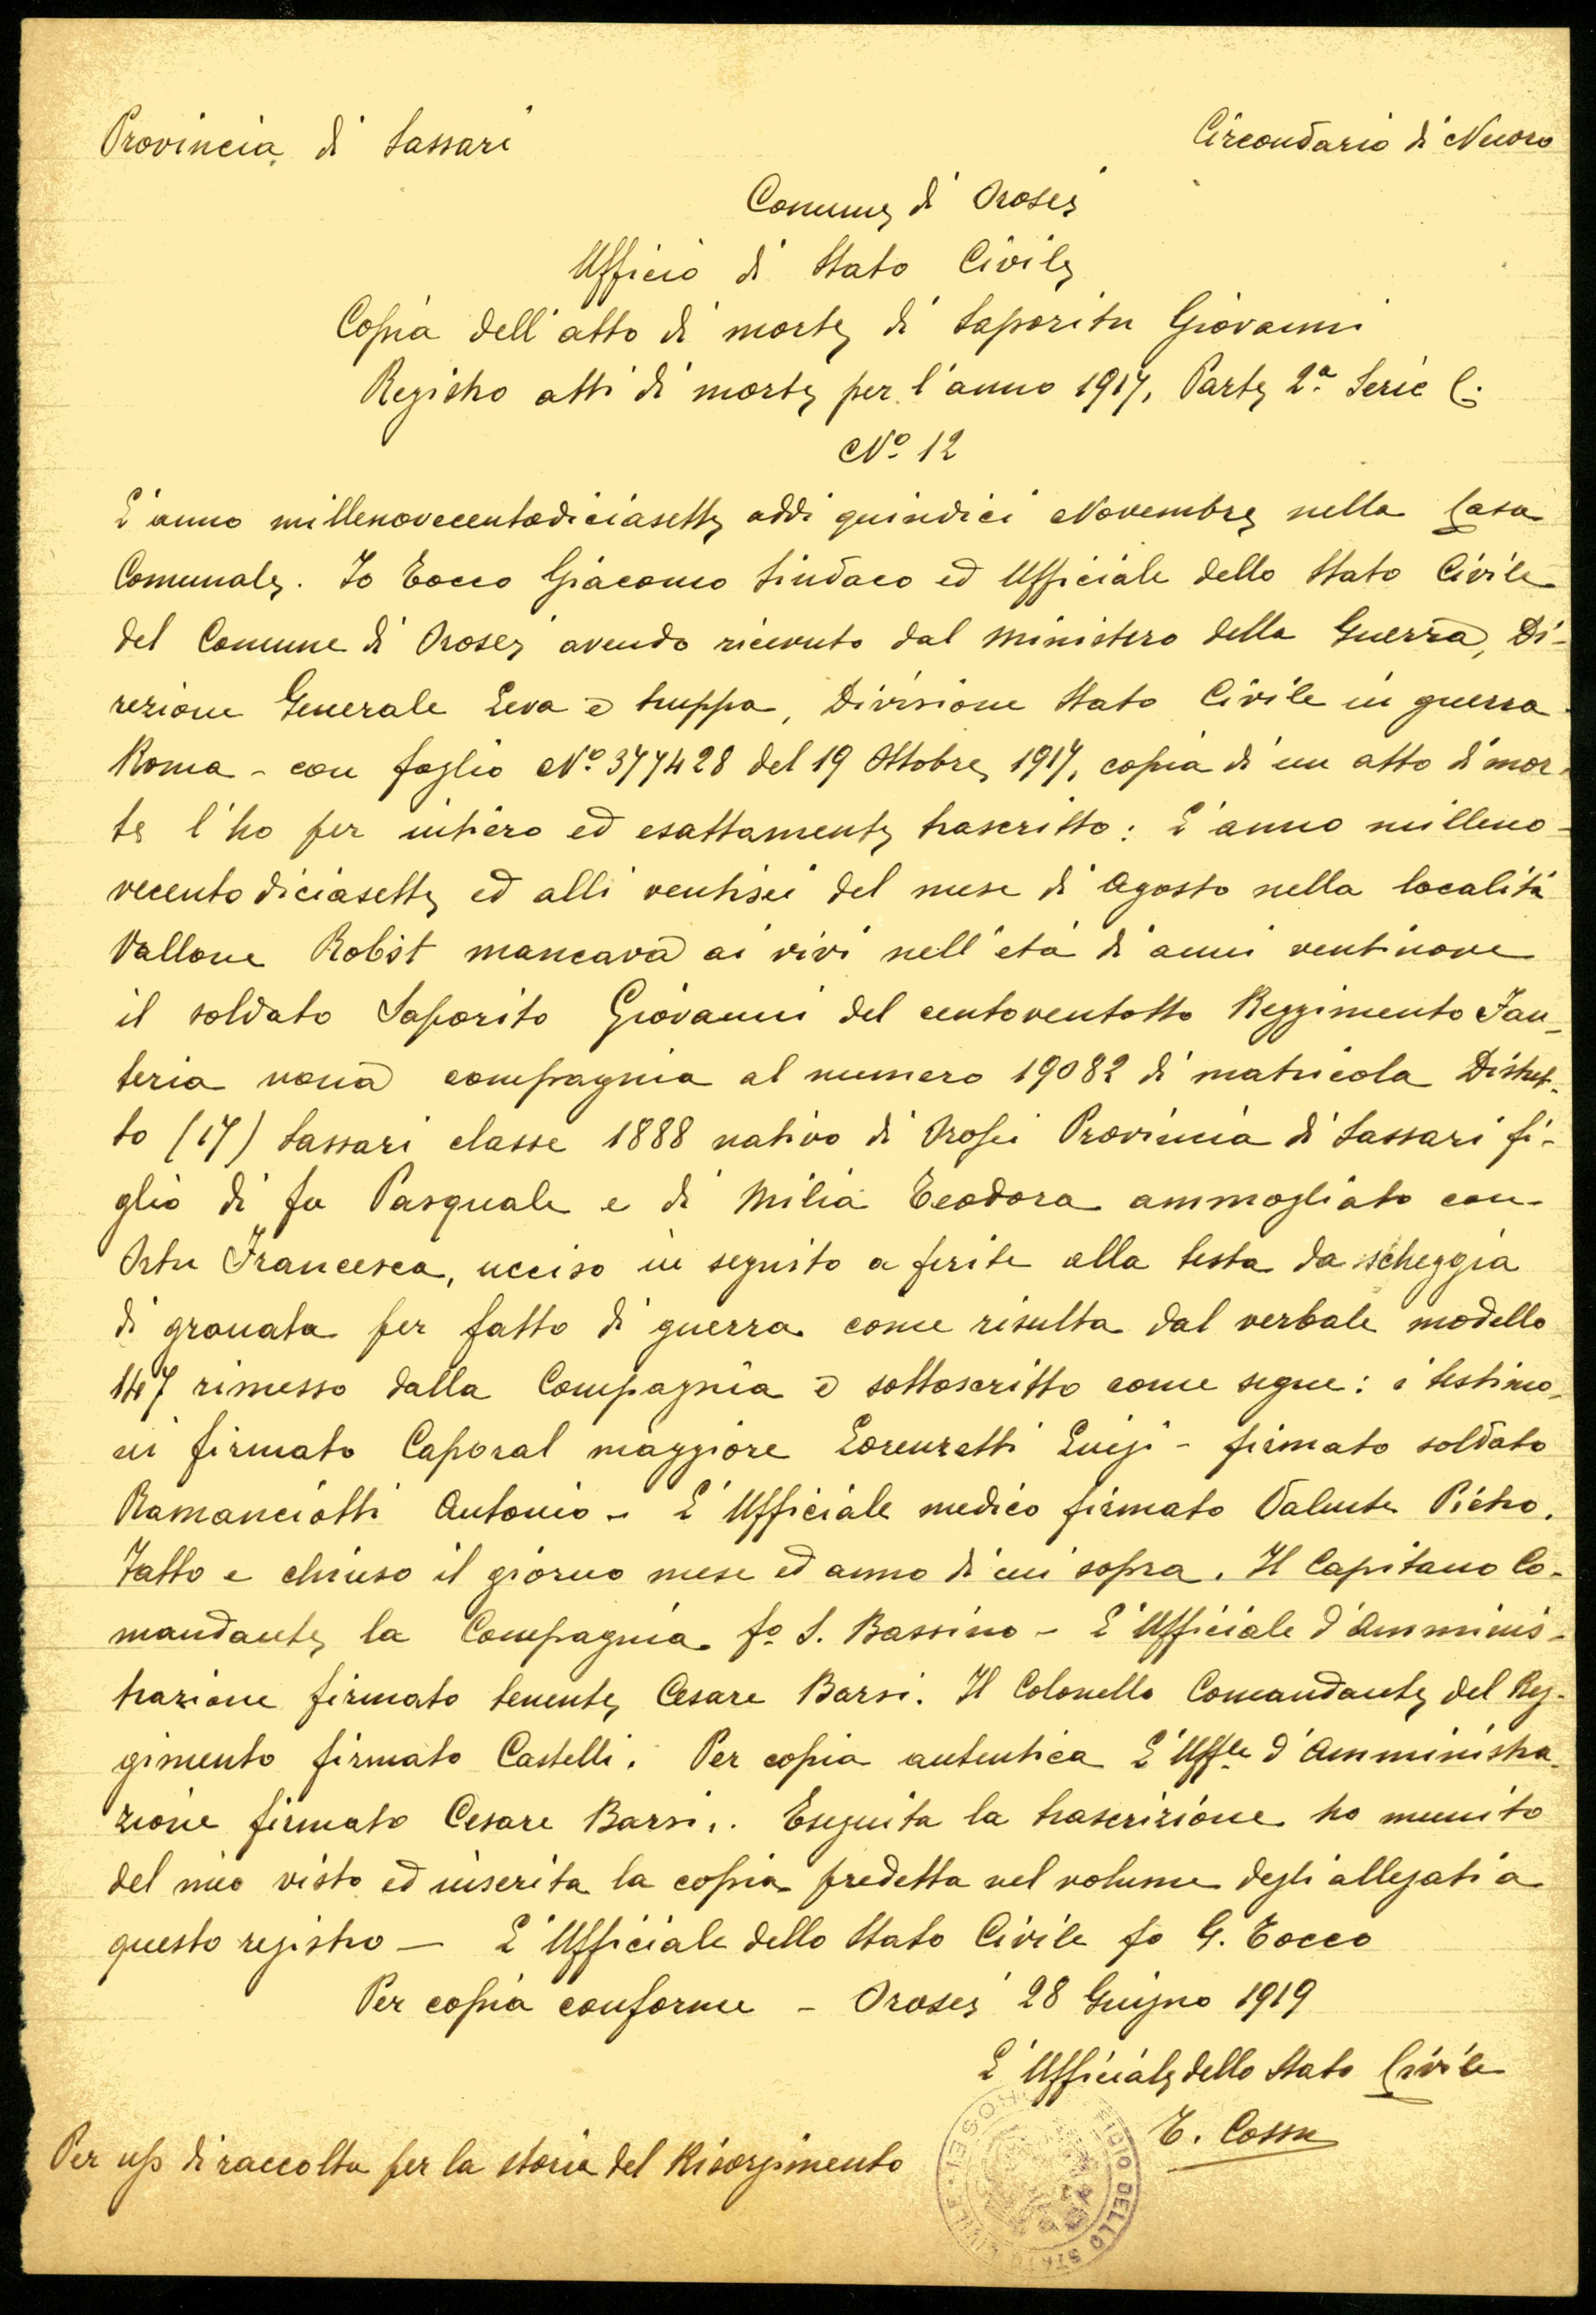 Provincia di Sassari
Circondario di Nuoro
Comune di Orosei
Ufficio di Stato Civile
Copia dell'atto di morte di Saporitu Giovanni
Registro atti di morte per l'anno 1917, Parte 2ª Serie C.
Nº 12
L'anno millenovecentodiciasette addi quindici Novembre nella Casa
Comunale. Io Tocco Giacomo Sindaco ed Ufficiale dello Stato Civile
del Comune di Orosei avendo ricevuto dal Ministero della Guerra, Di-
rezione Generale Leva e truppa, Divisione Stato Civile in guerra
Roma - con foglio Nº 377428 del 19 Ottobre 1917, copia di un atto di mor-
te l'ho per intiero ed esattamente trascritto: L'anno milleno-
vecentodiciasette ed alli ventisei del mese di Agosto nella località
Vallone Robit mancava ai vivi nell'età di anni ventinove
il soldato Saporito Giovanni del centoventotto Reggimento Fan-
teria nona compagnia al numero 19082 di matricola Distret-
to (17) Sassari classe 1888 nativo di Orosei Provincia di Sassari fi-
glio di fu Pasquale e di Milia Teodora ammogliato con
Ortu Francesca, ucciso in seguito a ferite alla testa da scheggia
di granata per fatto di guerra come risulta dal verbale modello
147 rimesso dalla Compagnia e sottoscritto come segue: i testimo-
ni firmato Caporal maggiore Lorenzetti Luigi - firmato soldato
Ramanciotti Antonio - L'Ufficiale medico firmato Valente Pietro.
Fatto e chiuso il giorno mese ed anno di cui sopra. Il Capitano Co-
mandante la Compagnia fº S. Bassino - L'Ufficiale d'Amminis-
trazione firmato tenente Cesare Barsi. Il Colonello Comandante del Reg-
gimento firmato Castelli. Per copia autentica L'Uffle d'Amministra-
zione firmato Cesare Barsi. Eseguita la trascrizione ho munito
del mio visto ed inserita la copia predetta nel volume degli allegati a
questo registro - L'Ufficiale dello Stato Civile fo G. Tocco
Per copia conforme - Orosei 28 Giugno 1919
L'Ufficiale dello Stato Civile
E. Cossu
Per uso di raccolta per la storia del Risorgimento
UFFICIO DELLO STATO CIVILE · OROSEI